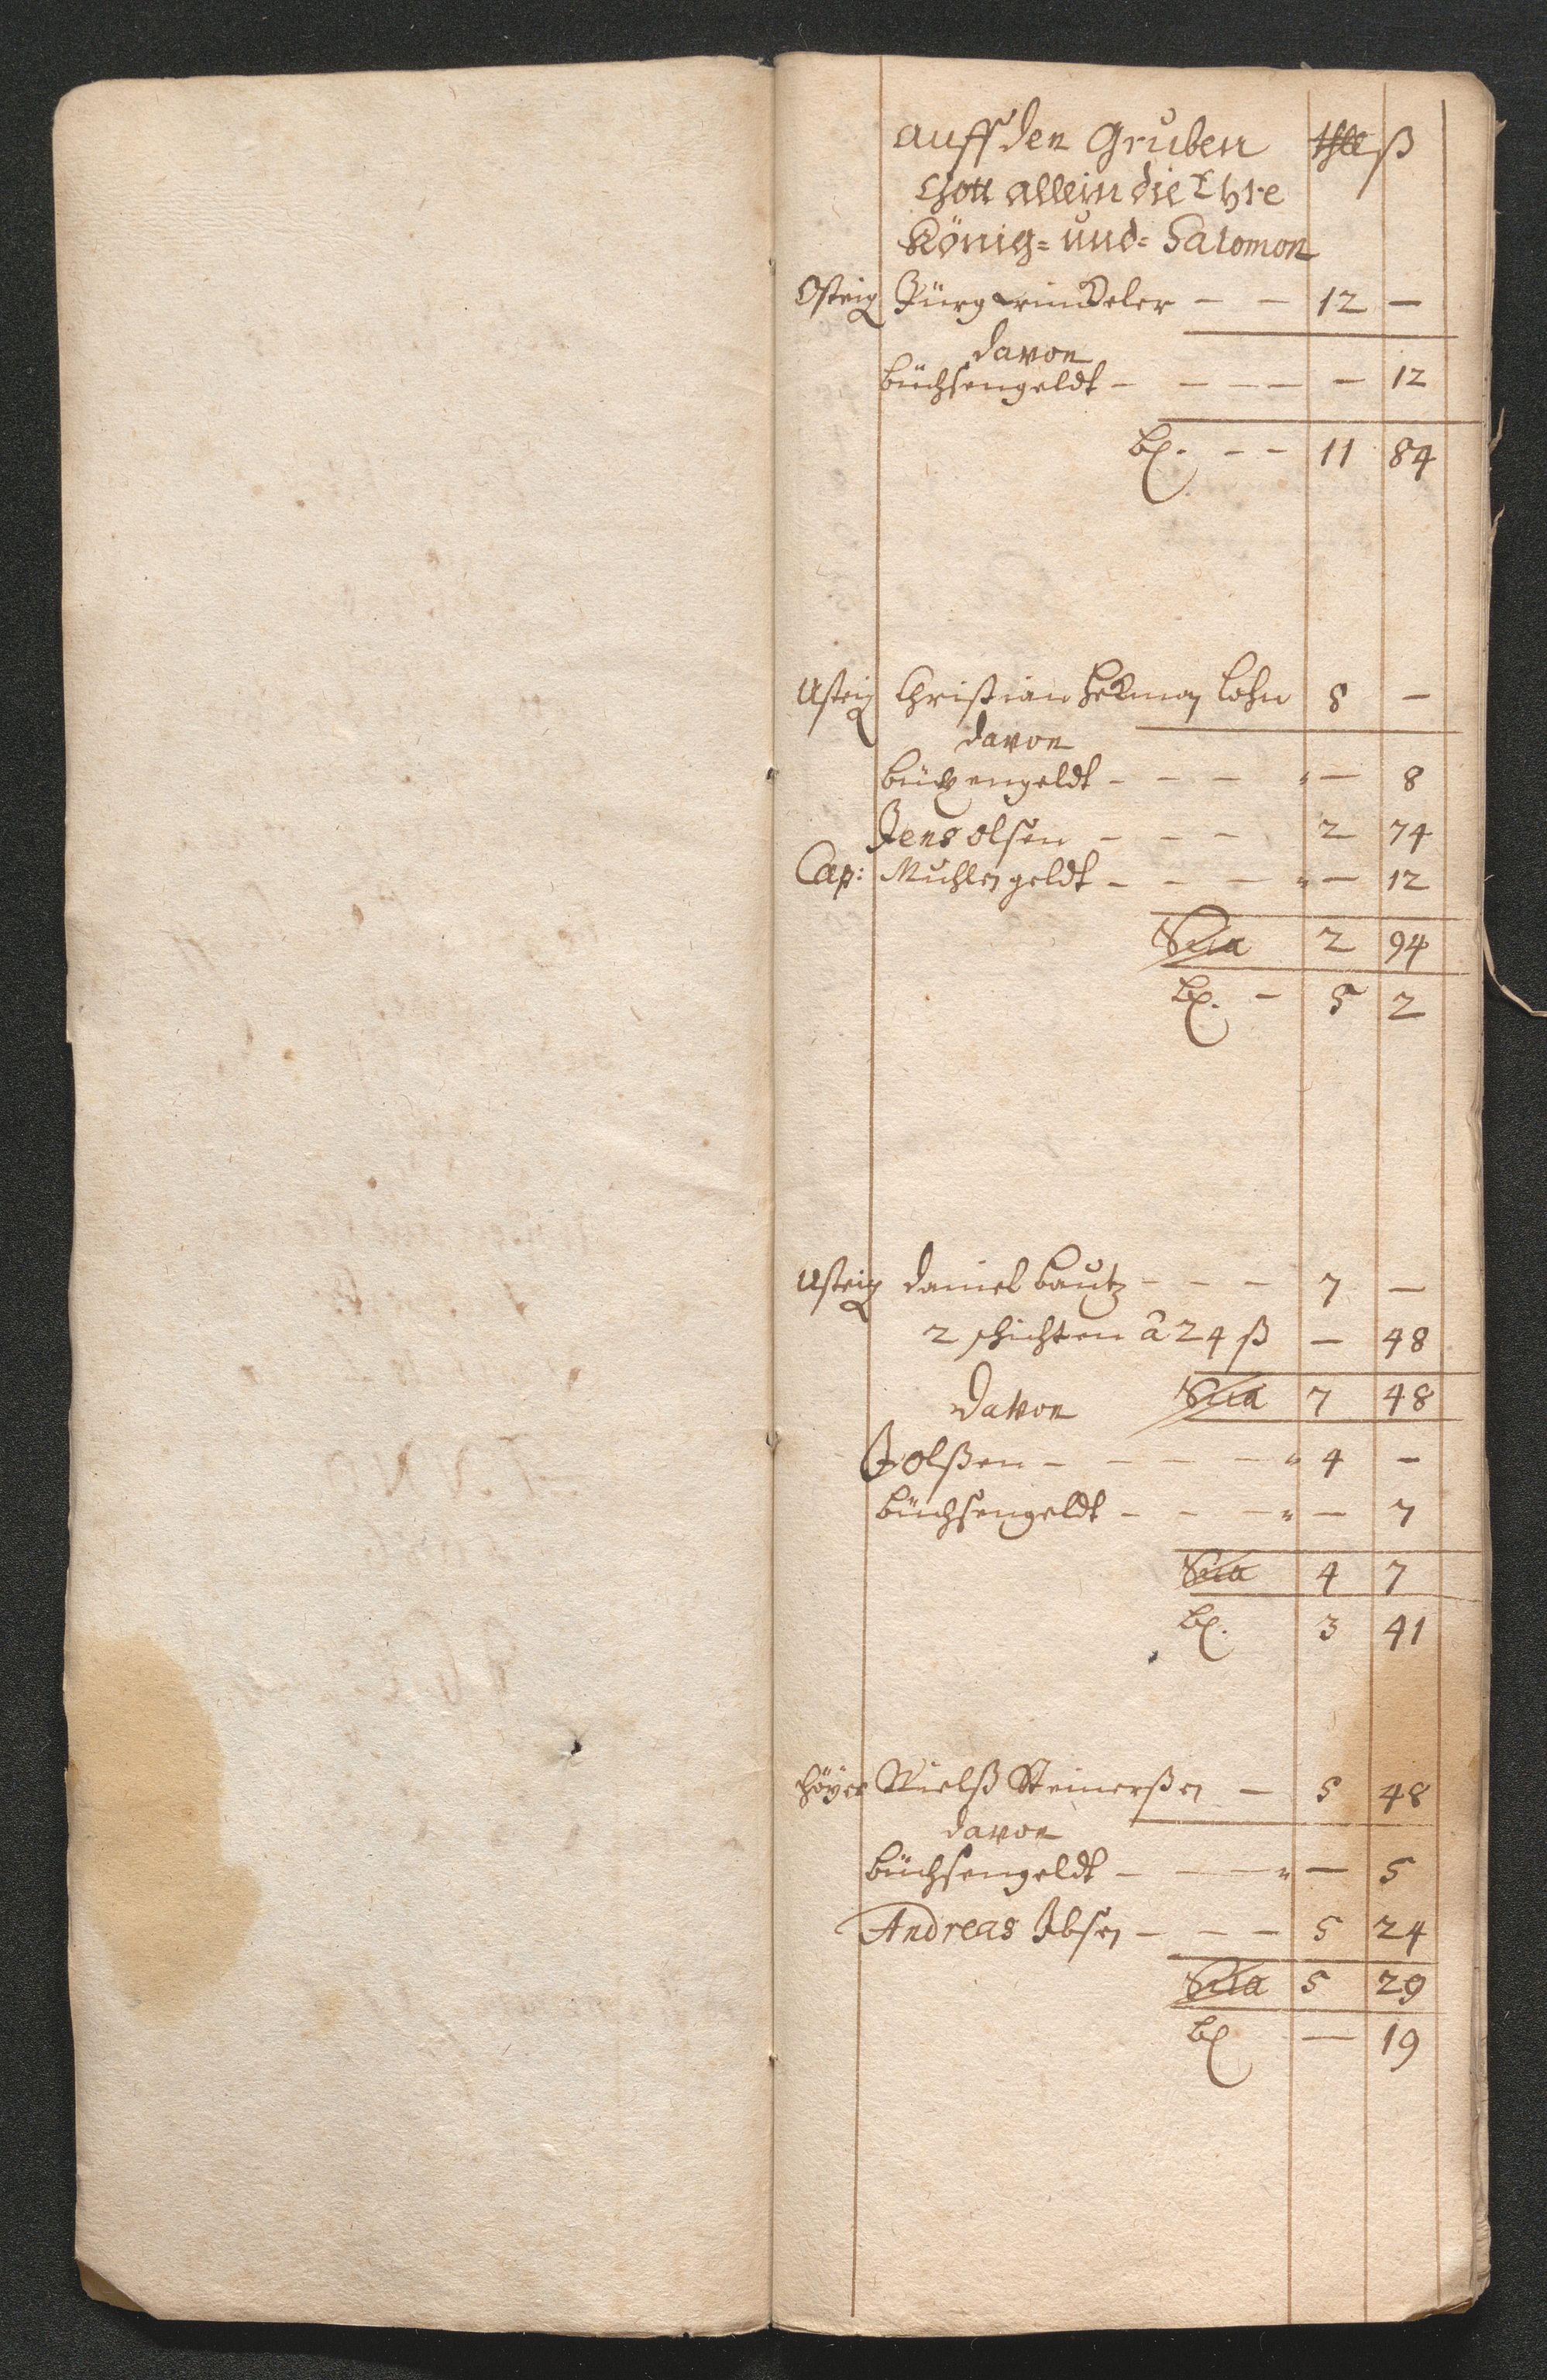 auff den Gruben thll ß
Gott allein die Ehre
König= und= Salomon
Osteig Jürg Winckeler - - 12 -
davon
büchsengeldt - - - - - 12
bl. - - 11 84
Usteig Christian Hekman lohn 8 -
davon
büchsengeldt - - - " - 8
Jens olsen - - - 2 74
Cap: Muhlengeldt - - - " - 12
Sua 2 94
bl. - 5 2
Usteig Daniel bautz - - - 7 -
2 schichten â 24 ß - 48
Davon Sua 7 48
J olßen - - - - " 4 -
büchsengeldt - - - " - 7
Sua 4 7
bl. 3 41
höyer Nielß Steinerßen - 5 48
davon
büchsengeldt - - - " - 5
Andreas Ibsen - - - 5 24
Sua 5 29
bl - 19